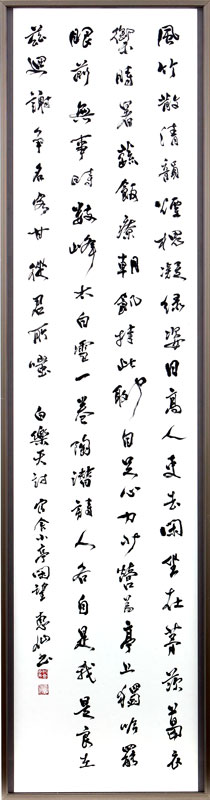 風竹散清韻煙槐凝綠姿日高人吏去閑坐在茅茨葛衣
禦時暑蔬飯療朝飢持此聊自足心力少營為亭上獨吟罷
眼前無事時數峰太白雪一卷陶潛詩人各自是我是良在
茲迴謝爭名客甘從君所嗤 白樂天詩 官舍小亭閑望 書